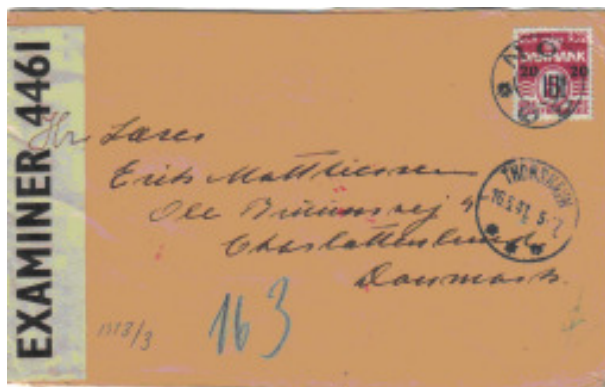 EXAMINER 4461
DANMARK
20 20
THORSHAVN
Hr. Læser
Erik Matthiessen
Ole Bruunsvej
Charlottenlund
Danmark
163